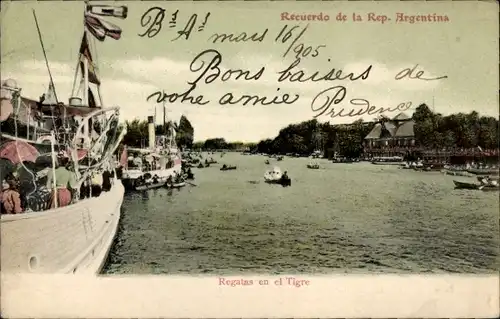 Recuerdo de la Rep. Argentina
Bˢ Aˢ mars 16/1905
Bons baisers de
votre amie Prudence
Regatas en el Tigre